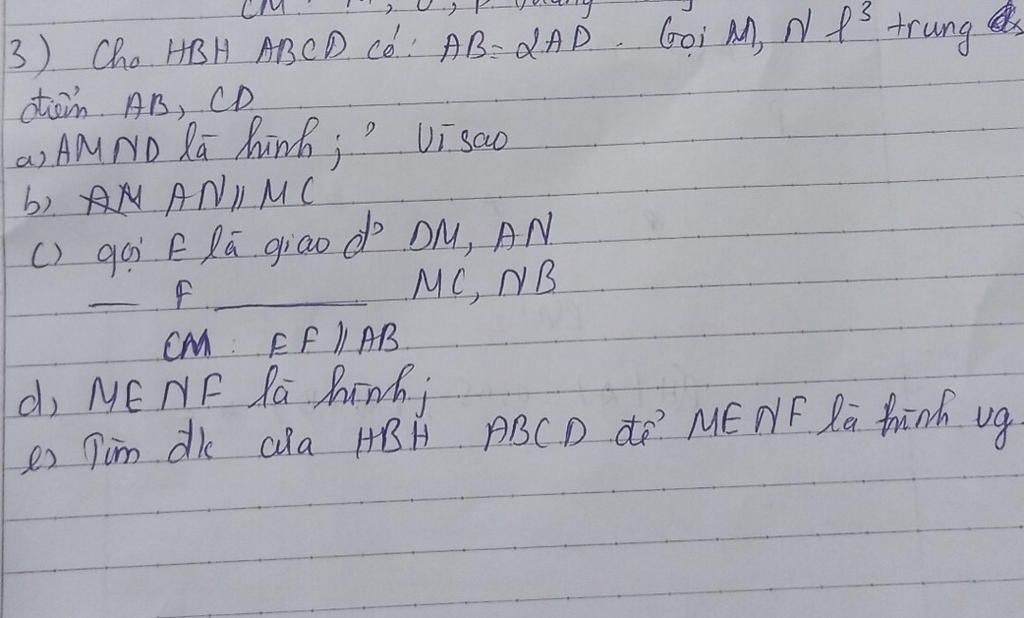 CM
3) Cho HBH ABCD có: AB = 2AD. Gọi M, N l³ trung
điểm AB, CD
a, AMND là hình j? Vì sao
b, AN // MC
c) gọi E là giao đ° DM, AN
— F ——— MC, NB
CM: EF // AB
d, MENF là hình j
e, Tìm đk của HBH ABCD để MENF là hình vg